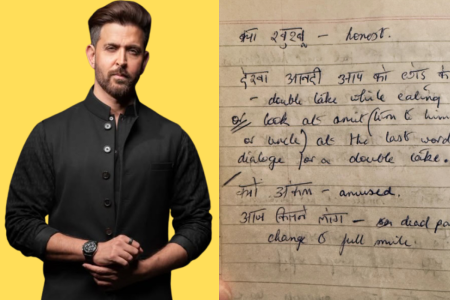 क्या खुशबू — honest.
देखा आनदी आप को छोड के
- double take while eating
or look at amit (him to him
or uncle) at the last word
dialoge for a double take.
क्यों अंकल - amused.
आज कितने लोग - dead pa
change to full smile.